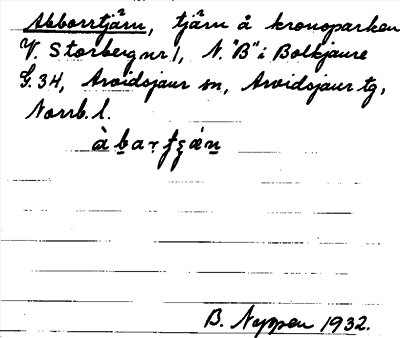 Abborrtjärn, tjärn å kronoparken
V. Storberg nr 1, N. "B" i Bolkjaure
G. 34, Arvidsjaur sn, Arvidsjaur tg,
Norrb. l.
B. Nyppen 1932.